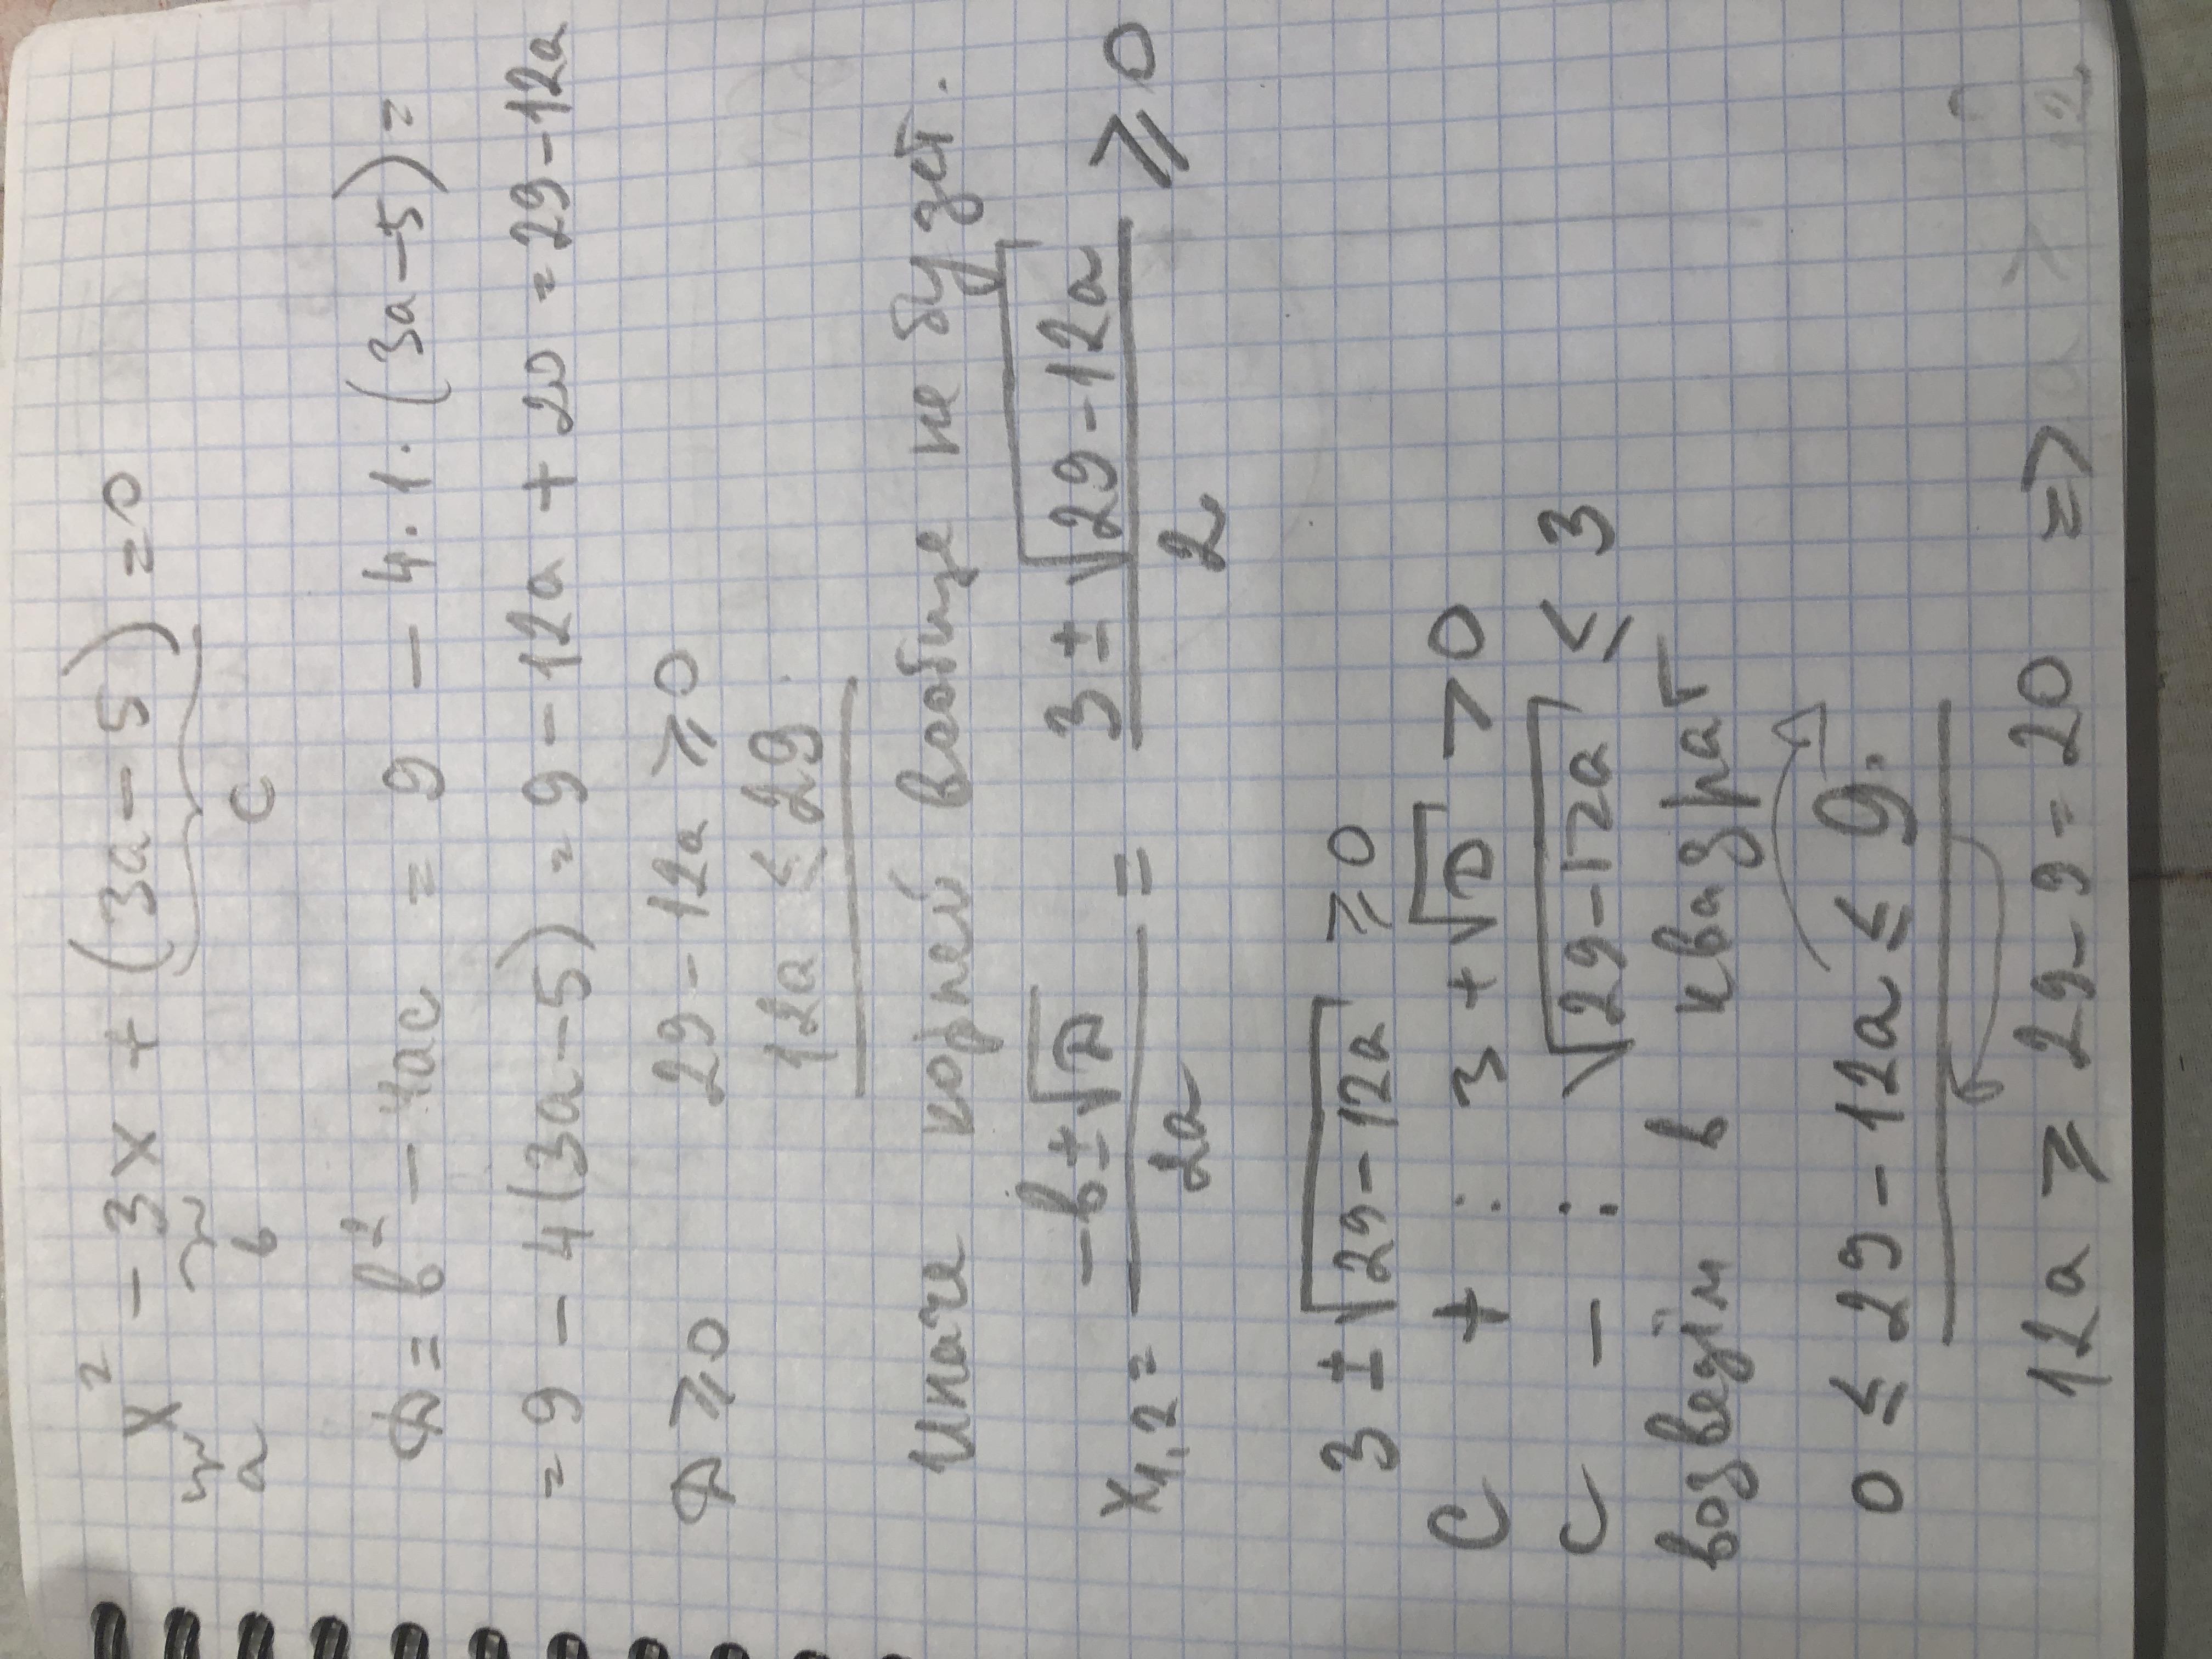 x² - 3x + (3a-5) = 0
a b c
D = b² - 4ac = 9 - 4·1·(3a-5) =
= 9 - 4(3a-5) = 9 - 12a + 20 = 29-12a
D ⩾ 0 29-12a ⩾ 0
12a ≤ 29.
Иначе корней вообще не будет.
x₁,₂ = (-b±√D)/(2a) = (3±√(29-12a))/2 ⩾ 0
3 ± √(29-12a) ⩾ 0
С + : 3 + √D > 0
С - : √(29-12a) ≤ 3
возведём в квадрат
0 ≤ 29-12a ≤ 9.
12a ⩾ 29-9=20 =>